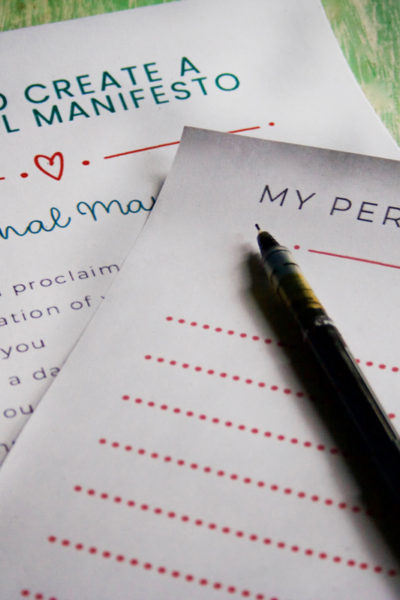 O CREATE A
L MANIFESTO
nal Ma
proclaim
ation of
you
a da
ou
MY PER